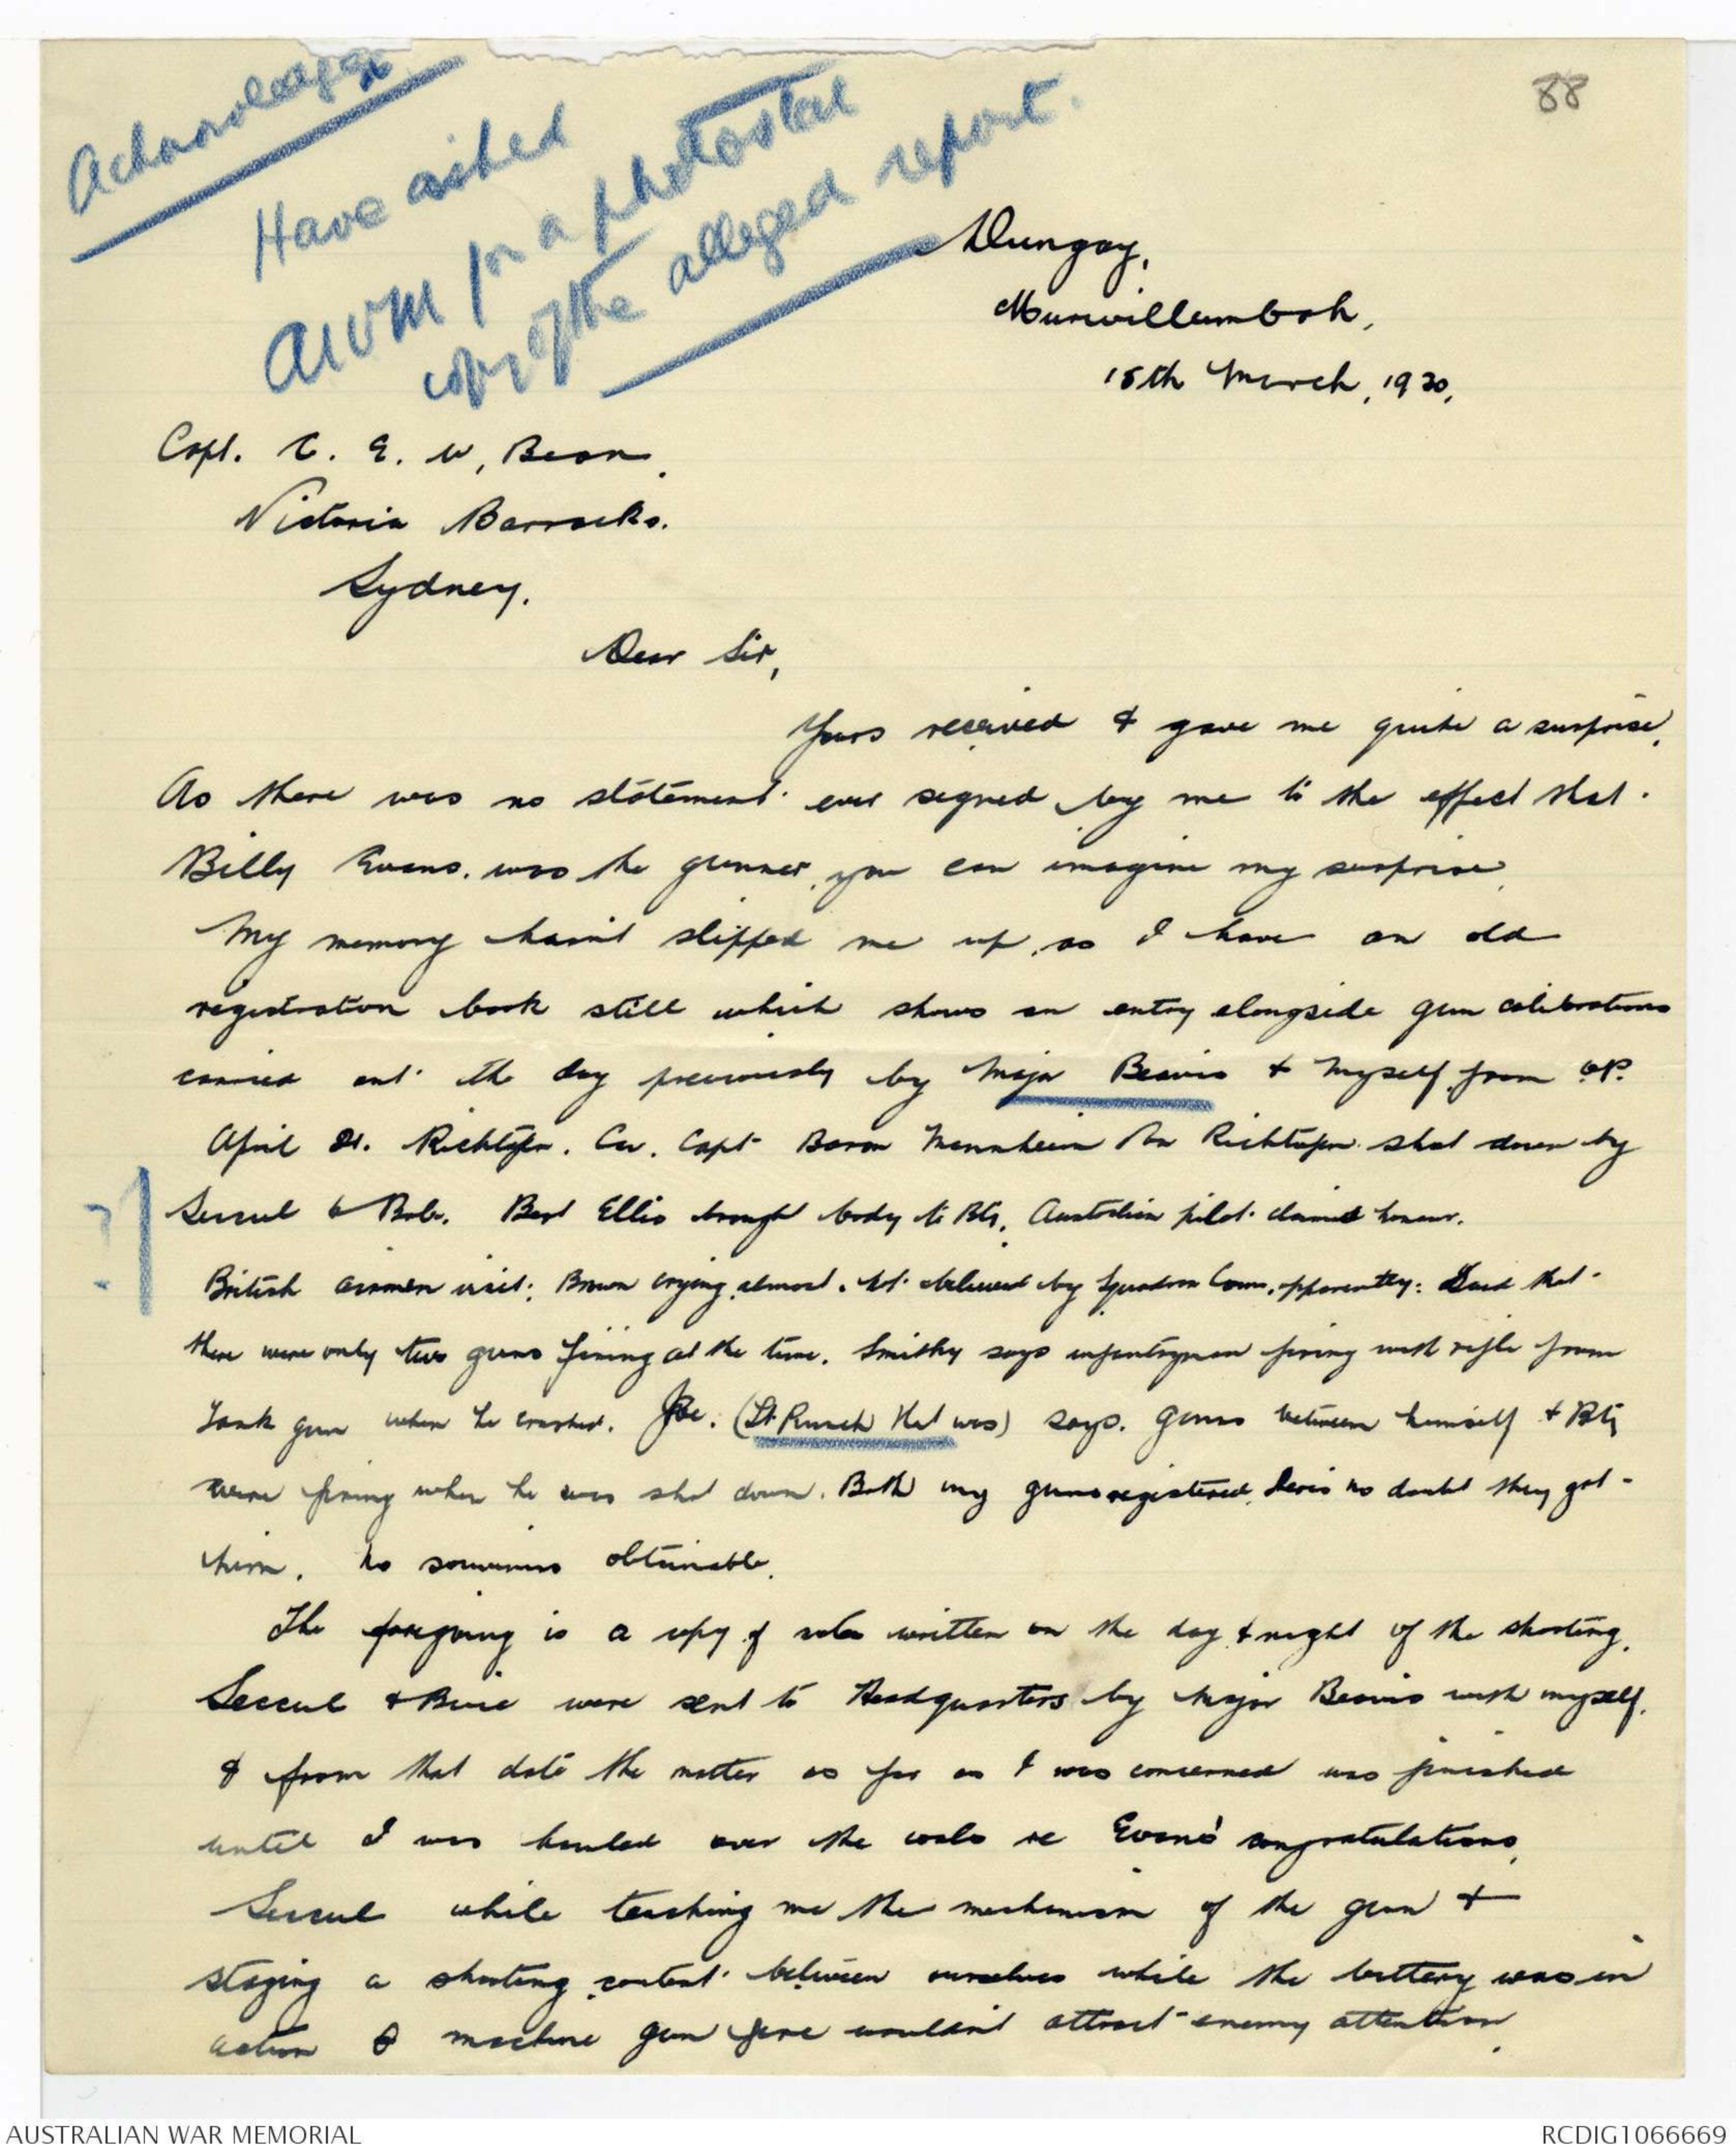 88
Acknowledged
Have asked
AWM for a photostat
copy of the alleged report.
Dungay,
Murwillumbah,
15th March, 1930,
Capt. C. E. W, Bean,
Victoria Barracks.
Sydney.
Dear Sir,
Yours received & gave me quite a surprise,
As there was no statement ever signed by me to the effect that
Billy Evans. was the gunner, you can imagine my surprise,
My memory hasn't slipped me up, as I have an old
registration book still which shows an entry alongside gun calibrations
carried out the day previously by Major Beavis & myself from O.P.
April 21. Richtofen. Cav. Capt Baron Mannheim Von Richtofen shot down by
Seccul & Bob. Bert Ellis brought body to Bty. Australian pilot claimed honour.
British airmen visit: Brown crying almost. Not believed by Squadron Com. apparently: Said that
there were only two guns firing at the time. Smithy says infantryman firing with rifle from
Tank gun when he crashed. Joe. (Lt Punch that was) says. guns between himself & Bty
were firing when he was shot down. Both my guns registered, Davis no doubt they got
him. No souvenirs obtainable.
The foregoing is a copy of notes written on the day & night of the shooting.
Seccul & Buie were sent to Headquarters by Major Beavis with myself.
& from that date the matter as far as I was concerned was finished
until I was hauled over the coals re Evans' congratulations,
Seccul while teaching me the mechanism of the gun &
staging a shooting contest between ourselves while the battery was in
action & machine gun fire wouldn't attract enemy attention.
AUSTRALIAN WAR MEMORIAL
RCDIG1066669